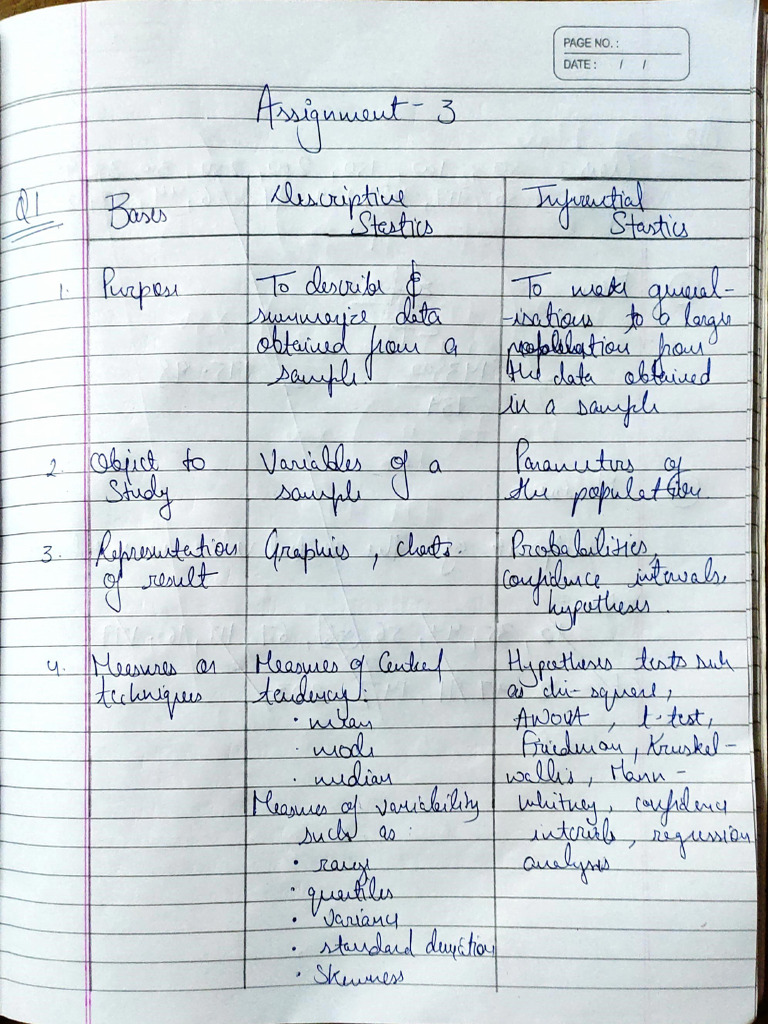 PAGE NO. :
DATE : / /
Assignment - 3
Q1
Bases
Descriptive
Stastics
Infrential
Stastics
1. Purpose
To describe &
summarize data
obtained from a
sample
To make general-
-isations to a large
population from
the data obtained
in a sample
2. Object to
Study
Variables of a
sample
Parameters of
the population
3. Representation
of result
Graphics, charts.
Probabilities,
confidence intervals,
hypothesis.
4. Measures or
techniques
Measures of Central
tendency:
• mean
• mode
• median
Measures of variability
such as :
• range
• quartiles
• variance
• standard deviation
• Skewness
Hypothesis tests such
as chi-square,
ANOVA, t-test,
Friedman, Kruskel-
wallis, Mann-
whitney, confidence
intervals, regression
analysis